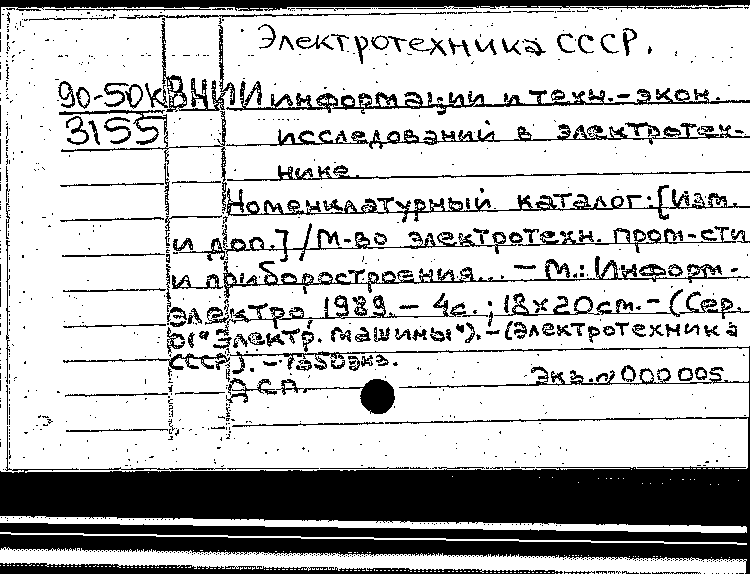 Электротехника СССР.
90-50к ВНИИ информации и техн.-экон.
3155 исследований в электротех-
нике.
Номенклатурный каталог: [Изм.
и доп.] / М-во электротехн. пром-сти
и приборостроения... — М.: Информ-
электро, 1989. — 4с.; 18х20см. - (Сер.
01 "Электр. машины"). - (Электротехника
СССР). - 7350экз.
ДСП. Экз. № 000005